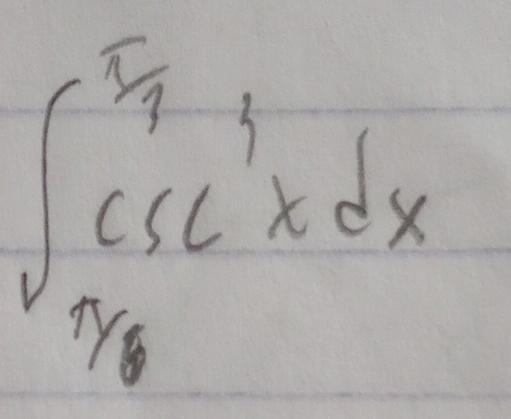 ∫_{π/6}^{π/3} csc³ x dx